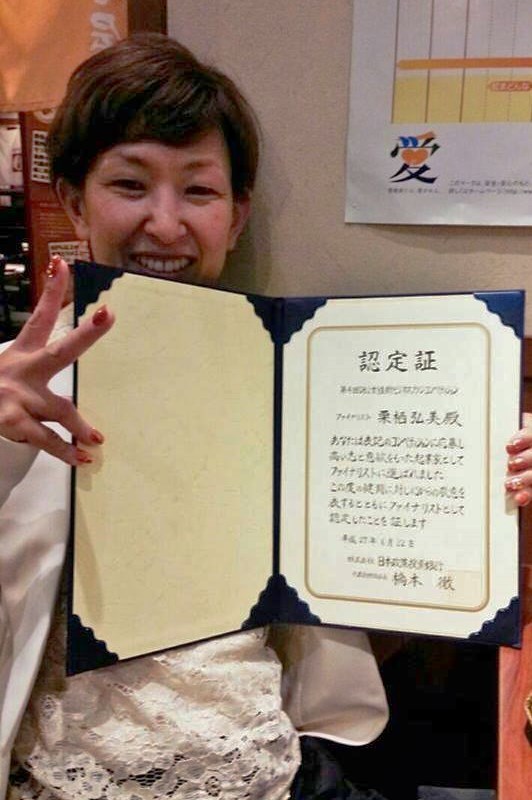 愛
認定証
第4回DBJ女性新ビジネスプランコンペティション
ファイナリスト 栗栖弘美殿
あなたは表記のコンペティションに応募し
高い志と意欲をもった起業家として
ファイナリストに選ばれました
この度の健闘に対し心からの敬意を
表するとともにファイナリストとして
認定したことを証します
平成27年6月22日
株式会社 日本政策投資銀行
代表取締役社長 橋本 徹